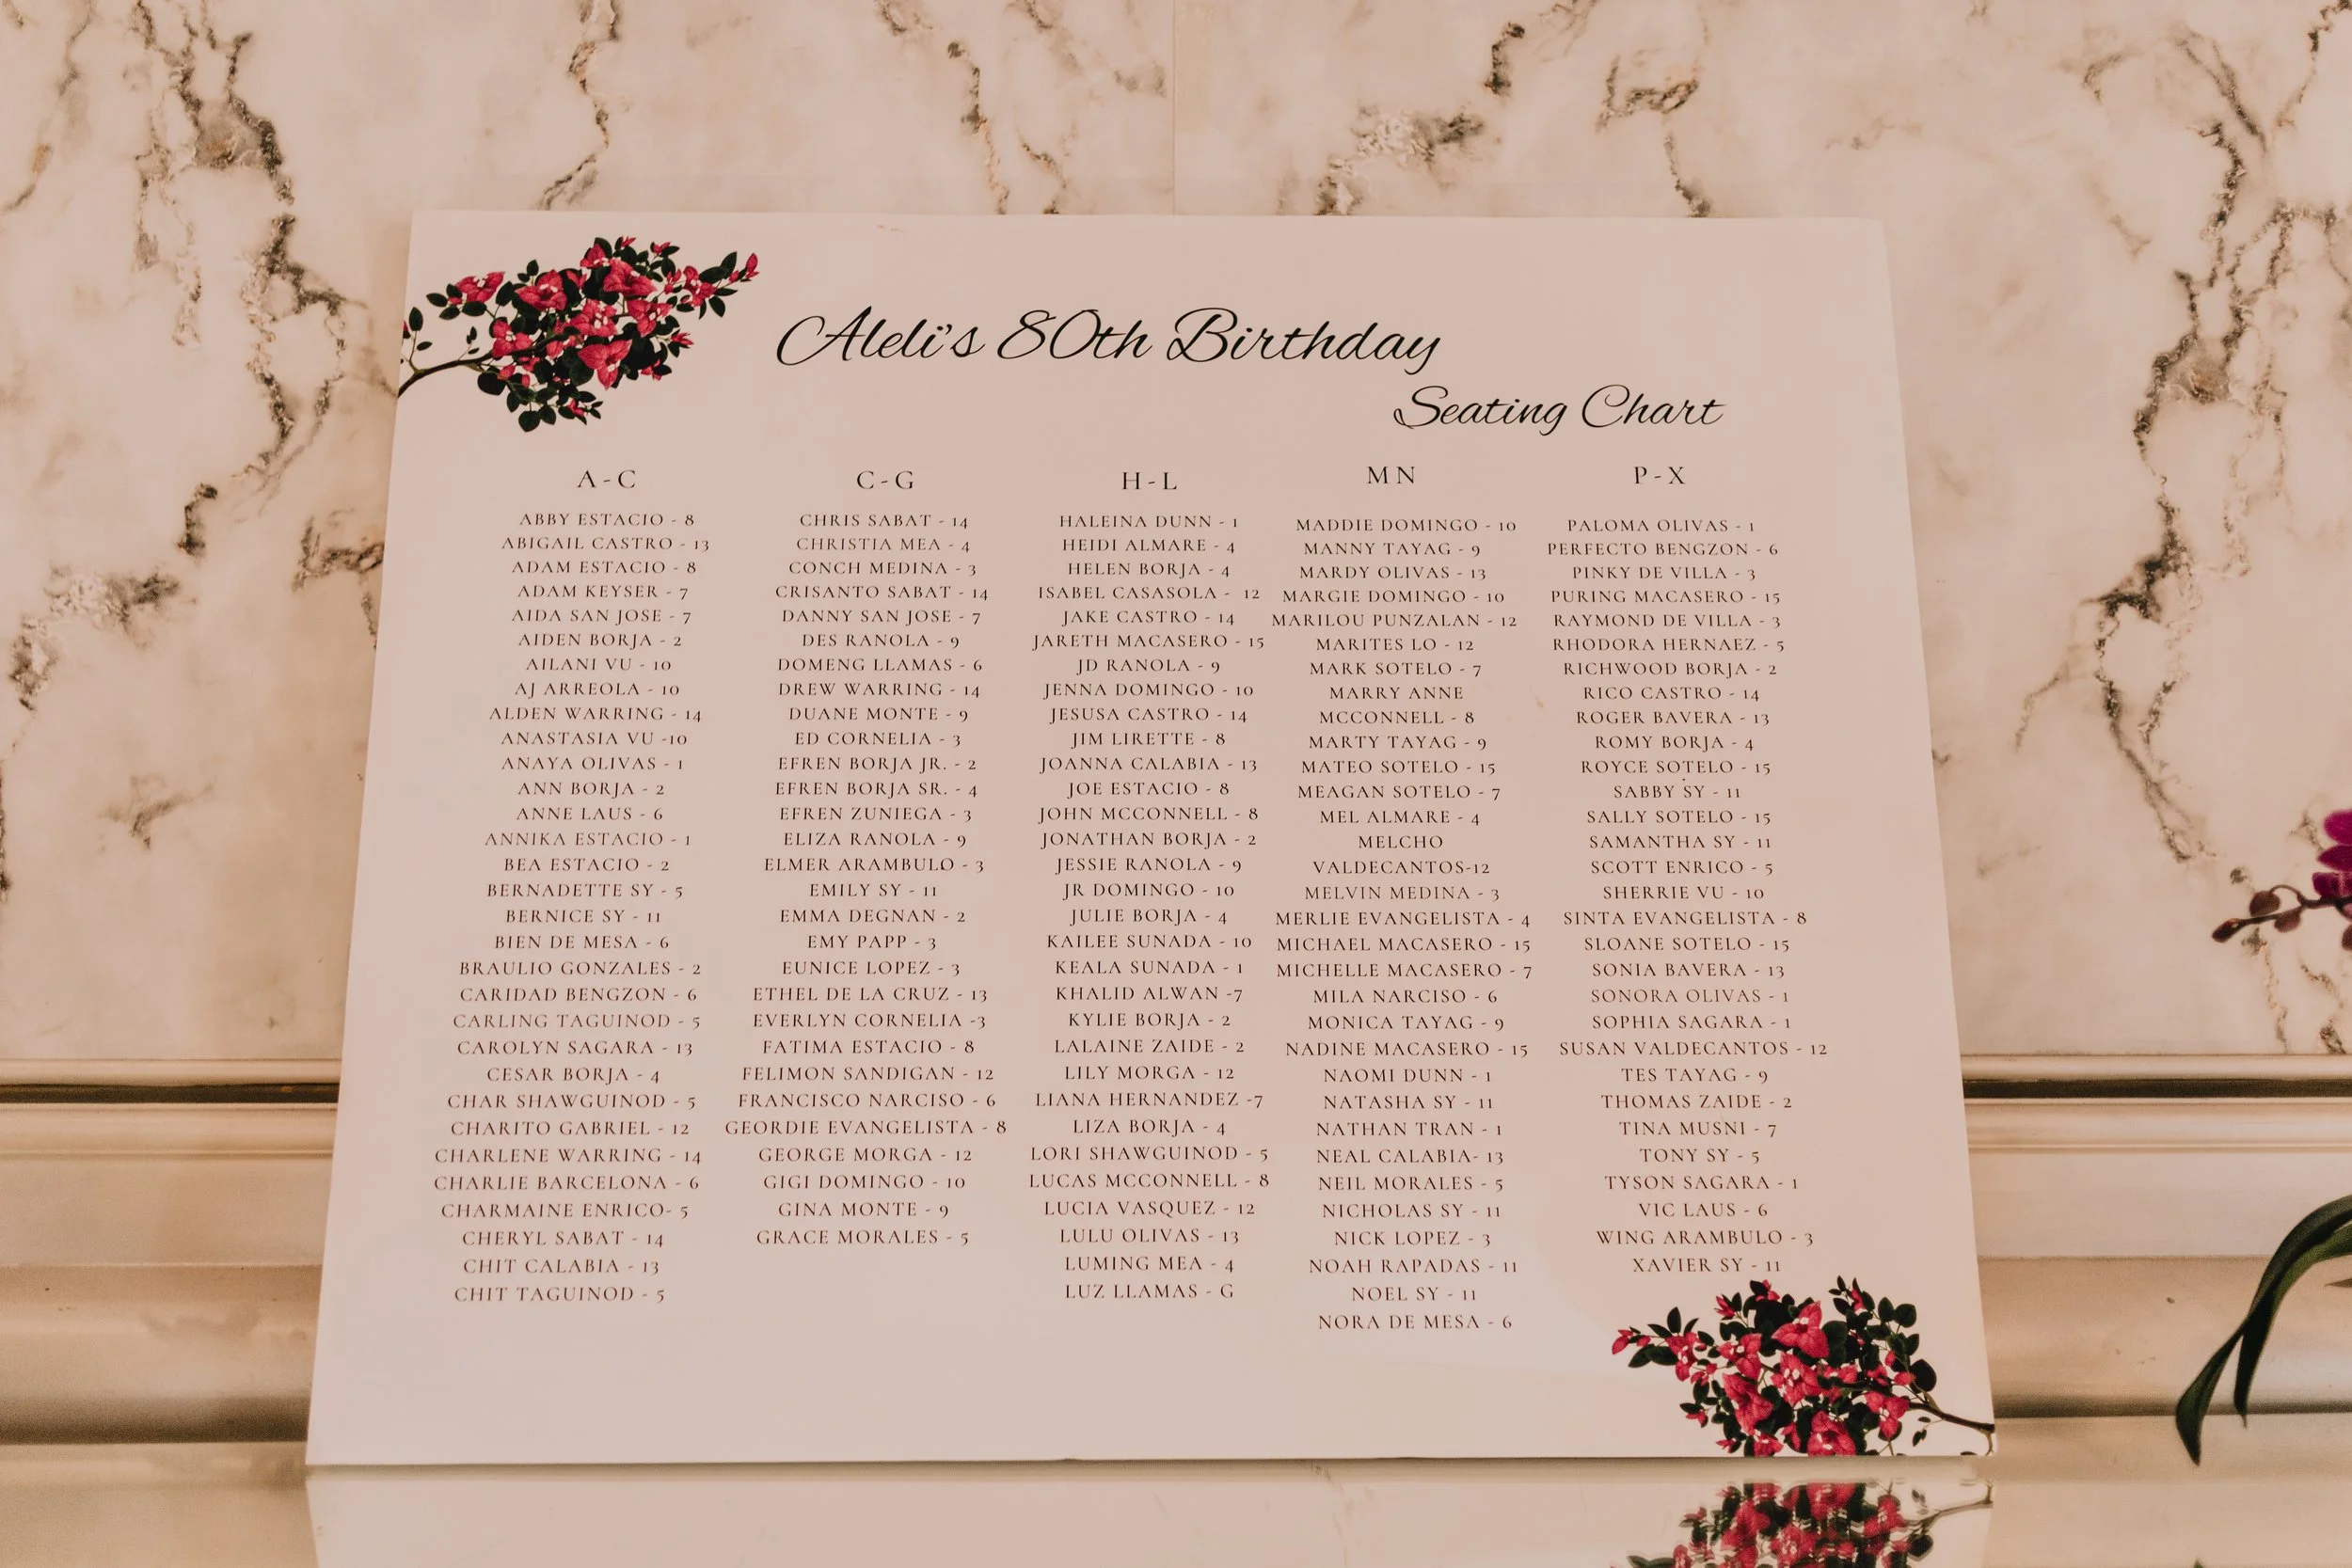 Aleli's 80th Birthday
Seating Chart
A-C
ABBY ESTACIO - 8
ABIGAIL CASTRO - 13
ADAM ESTACIO - 8
ADAM KEYSER - 7
AIDA SAN JOSE - 7
AIDEN BORJA - 2
AILANI VU - 10
AJ ARREOLA - 10
ALDEN WARRING - 14
ANASTASIA VU -10
ANAYA OLIVAS - 1
ANN BORJA - 2
ANNE LAUS - 6
ANNIKA ESTACIO - 1
BEA ESTACIO - 2
BERNADETTE SY - 5
BERNICE SY - 11
BIEN DE MESA - 6
BRAULIO GONZALES - 2
CARIDAD BENGZON - 6
CARLING TAGUINOD - 5
CAROLYN SAGARA - 13
CESAR BORJA - 4
CHAR SHAWGUINOD - 5
CHARITO GABRIEL - 12
CHARLENE WARRING - 14
CHARLIE BARCELONA - 6
CHARMAINE ENRICO- 5
CHERYL SABAT - 14
CHIT CALABIA - 13
CHIT TAGUINOD - 5
C-G
CHRIS SABAT - 14
CHRISTIA MEA - 4
CONCH MEDINA - 3
CRISANTO SABAT - 14
DANNY SAN JOSE - 7
DES RANOLA - 9
DOMENG LLAMAS - 6
DREW WARRING - 14
DUANE MONTE - 9
ED CORNELIA - 3
EFREN BORJA JR. - 2
EFREN BORJA SR. - 4
EFREN ZUNIEGA - 3
ELIZA RANOLA - 9
ELMER ARAMBULO - 3
EMILY SY - 11
EMMA DEGNAN - 2
EMY PAPP - 3
EUNICE LOPEZ - 3
ETHEL DE LA CRUZ - 13
EVERLYN CORNELIA -3
FATIMA ESTACIO - 8
FELIMON SANDIGAN - 12
FRANCISCO NARCISO - 6
GEORDIE EVANGELISTA - 8
GEORGE MORGA - 12
GIGI DOMINGO - 10
GINA MONTE - 9
GRACE MORALES - 5
H-L
HALEINA DUNN - 1
HEIDI ALMARE - 4
HELEN BORJA - 4
ISABEL CASASOLA - 12
JAKE CASTRO - 14
JARETH MACASERO - 15
JD RANOLA - 9
JENNA DOMINGO - 10
JESUSA CASTRO - 14
JIM LIRETTE - 8
JOANNA CALABIA - 13
JOE ESTACIO - 8
JOHN MCCONNELL - 8
JONATHAN BORJA - 2
JESSIE RANOLA - 9
JR DOMINGO - 10
JULIE BORJA - 4
KAILEE SUNADA - 10
KEALA SUNADA - 1
KHALID ALWAN -7
KYLIE BORJA - 2
LALAINE ZAIDE - 2
LILY MORGA - 12
LIANA HERNANDEZ -7
LIZA BORJA - 4
LORI SHAWGUINOD - 5
LUCAS MCCONNELL - 8
LUCIA VASQUEZ - 12
LULU OLIVAS - 13
LUMING MEA - 4
LUZ LLAMAS - G
MN
MADDIE DOMINGO - 10
MANNY TAYAG - 9
MARDY OLIVAS - 13
MARGIE DOMINGO - 10
MARILOU PUNZALAN - 12
MARITES LO - 12
MARK SOTELO - 7
MARRY ANNE
MCCONNELL - 8
MARTY TAYAG - 9
MATEO SOTELO - 15
MEAGAN SOTELO - 7
MEL ALMARE - 4
MELCHO
VALDECANTOS-12
MELVIN MEDINA - 3
MERLIE EVANGELISTA - 4
MICHAEL MACASERO - 15
MICHELLE MACASERO - 7
MILA NARCISO - 6
MONICA TAYAG - 9
NADINE MACASERO - 15
NAOMI DUNN - 1
NATASHA SY - 11
NATHAN TRAN - 1
NEAL CALABIA- 13
NEIL MORALES - 5
NICHOLAS SY - 11
NICK LOPEZ - 3
NOAH RAPADAS - 11
NOEL SY - 11
NORA DE MESA - 6
P-X
PALOMA OLIVAS - 1
PERFECTO BENGZON - 6
PINKY DE VILLA - 3
PURING MACASERO - 15
RAYMOND DE VILLA - 3
RHODORA HERNAEZ - 5
RICHWOOD BORJA - 2
RICO CASTRO - 14
ROGER BAVERA - 13
ROMY BORJA - 4
ROYCE SOTELO - 15
SABBY SY - 11
SALLY SOTELO - 15
SAMANTHA SY - 11
SCOTT ENRICO - 5
SHERRIE VU - 10
SINTA EVANGELISTA - 8
SLOANE SOTELO - 15
SONIA BAVERA - 13
SONORA OLIVAS - 1
SOPHIA SAGARA - 1
SUSAN VALDECANTOS - 12
TES TAYAG - 9
THOMAS ZAIDE - 2
TINA MUSNI - 7
TONY SY - 5
TYSON SAGARA - 1
VIC LAUS - 6
WING ARAMBULO - 3
XAVIER SY - 11